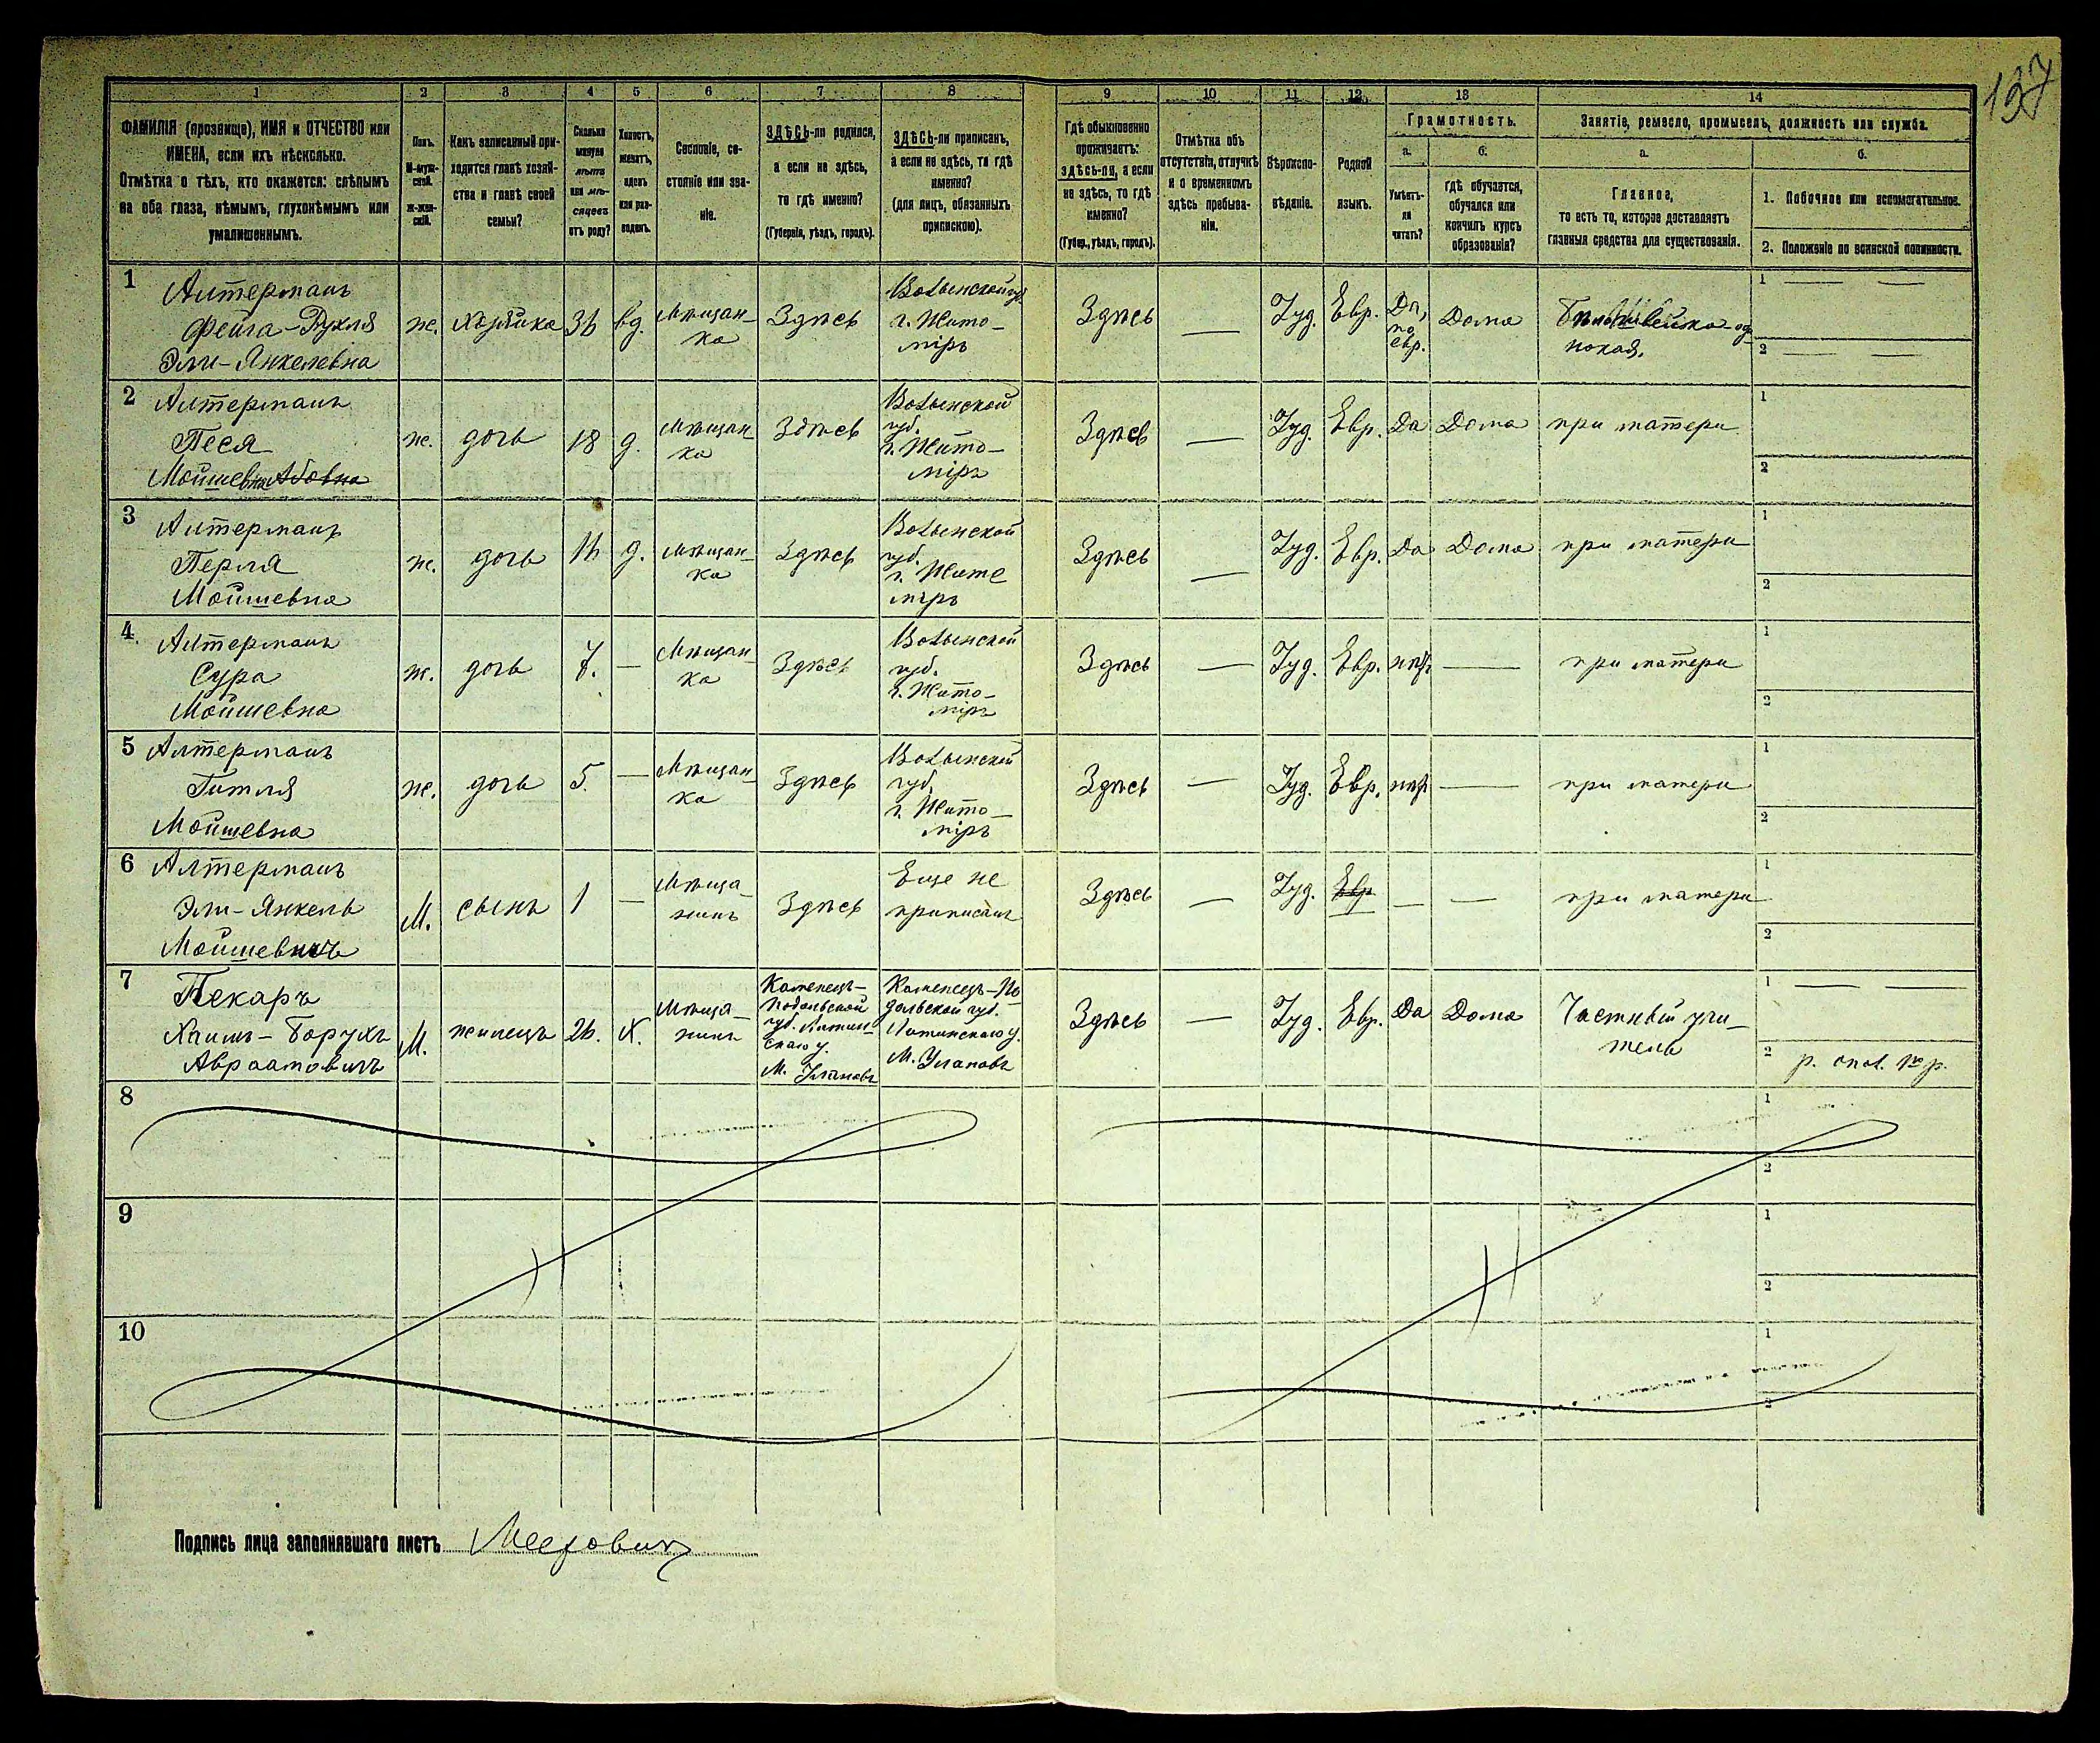 137
1 2 3 4 5 6 7 8 9 10 11 12 13 14
ФАМИЛІЯ (прозвище), ИМЯ и ОТЧЕСТВО или
ИМЕНА, если ихъ нѣсколько.
Отмѣтка о тѣхъ, кто окажется: слѣпымъ
на оба глаза, нѣмымъ, глухонѣмымъ или
умалишеннымъ.
Полъ.
М-муж-
ской.
Ж-жен-
скій.
Какъ записанный при-
ходится главѣ хозяй-
ства и главѣ своей
семьи?
Сколько
минуло
лѣтъ
или мѣ-
сяцевъ
отъ роду?
Холостъ,
женатъ,
вдовъ
или раз-
веденъ.
Сословіе, со-
стояніе или зва-
ніе.
ЗДѢСЬ-ли родился,
а если не здѣсь,
то гдѣ именно?
(Губернія, уѣздъ, городъ).
ЗДѢСЬ-ли приписанъ,
а если не здѣсь, то гдѣ
именно?
(для лицъ, обязанныхъ
припискою).
Гдѣ обыкновенно
проживаетъ:
здѣсь-ли, а если
не здѣсь, то гдѣ
именно?
(Губер., уѣздъ, городъ).
Отмѣтка объ
отсутствіи, отлучкѣ
и о временномъ
здѣсь пребыва-
ніи.
Вѣроиспо-
вѣданіе.
Родной
языкъ.
Грамотность.
а.
Умѣетъ-
ли
читать?
б.
гдѣ обучается,
обучался или
кончилъ курсъ
образованія?
Занятіе, ремесло, промыселъ, должность или служба.
а.
Главное,
то есть то, которое доставляетъ
главныя средства для существованія.
б.
1. Побочное или вспомогательное.
2. Положеніе по воинской повинности.
1 Алтерманъ
Фейга-Рухля
Эли-Янкелевна
ж. хозяйка 36 вд. Мѣщан-
ка
Здѣсь
Волынской гу.
г. Жито-
міръ
Здѣсь — Іуд. Евр. Да,
по
евр.
Дома
1 — —
2 — —
2 Алтерманъ
Песя
Мойшевна Абовна
ж. дочь 18 д. Мѣщан
ка
Здѣсь
Волынской
губ.
г. Жито-
міръ
Здѣсь — Іуд. Евр. Да Дома при матери
1
2
3 Алтерманъ
Перля
Мойшевна
ж. дочь 16 д. Мѣщан-
ка
Здѣсь
Волынской
губ.
г. Жито
міръ
Здѣсь — Іуд. Евр. Да Дома при матери
1
2
4. Алтерманъ
Сура
Мойшевна
ж. дочь 7. — Мѣщан-
ка
Здѣсь
Волынской
губ.
г. Жито-
міръ
Здѣсь — Іуд. Евр. нѣт — при матери
1
2
5 Алтерманъ
Гитля
Мойшевна
ж. дочь 5. — Мѣщан-
ка
Здѣсь
Волынской
губ.
г. Жито-
міръ
Здѣсь — Іуд. Евр. нѣт — при матери
1
2
6 Алтерманъ
Эли-Янкель
Мойшевичъ
М. сынъ 1 — Мѣща-
нинъ
Здѣсь
Еще не
приписанъ
Здѣсь — Іуд. Евр — — при матери
1
2
7 Пекаръ
Хаимъ-Борухъ
Авраамовичъ
М. жилецъ 26. Х. Мѣща-
нинъ
Каменецъ-
Подольской
губ. Литин-
скаго у.
М. Улановъ
Каменецъ-По
дольской губ.
Литинскаго у.
М. Улановъ
Здѣсь — Іуд. Евр. Да Дома Частный учи-
тель
1 — —
2 р. опол. 1го р.
8
1
2
9
1
2
10
1
2
Подпись лица заполнявшаго листъ Меерович